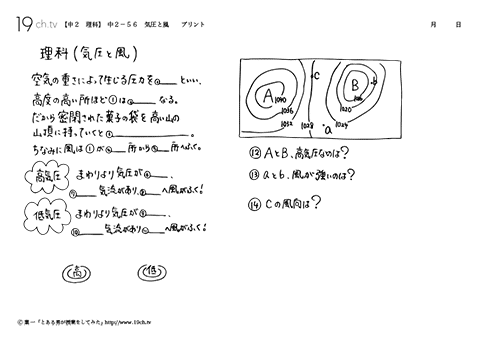 19ch.tv 【中2 理科】 中2-56 気圧と風 プリント 月 日
理科(気圧と風)
空気の重さによって生じる圧力を①___といい、
高度の高い所ほど①は②___なる。
だから密閉された菓子の袋を高い山の
山頂に持っていくと③___。
ちなみに風は①が④___所から⑤___所へふく。
高気圧 まわりより気圧が⑥___、
⑦___気流があり、⑧___へ風がふく!
低気圧 まわりより気圧が⑨___、
⑩___気流があり⑪___へ風がふく!
高 低
A 1040 1036 1032 1028 C a 1024 1020 B b
⑫AとB、高気圧なのは?
⑬aとb、風が強いのは?
⑭Cの風向は?
© 葉一「とある男が授業をしてみた」http://www.19ch.tv